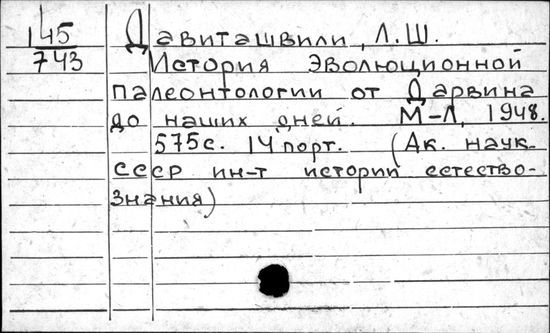 145
743
Давиташвили, Л.Ш.
История эволюционной
палеонтологии от Дарвина
до наших дней. М-Л, 1948.
575с. 14 порт. (Ак. наук.
СССР ин-т истории естество-
знания)